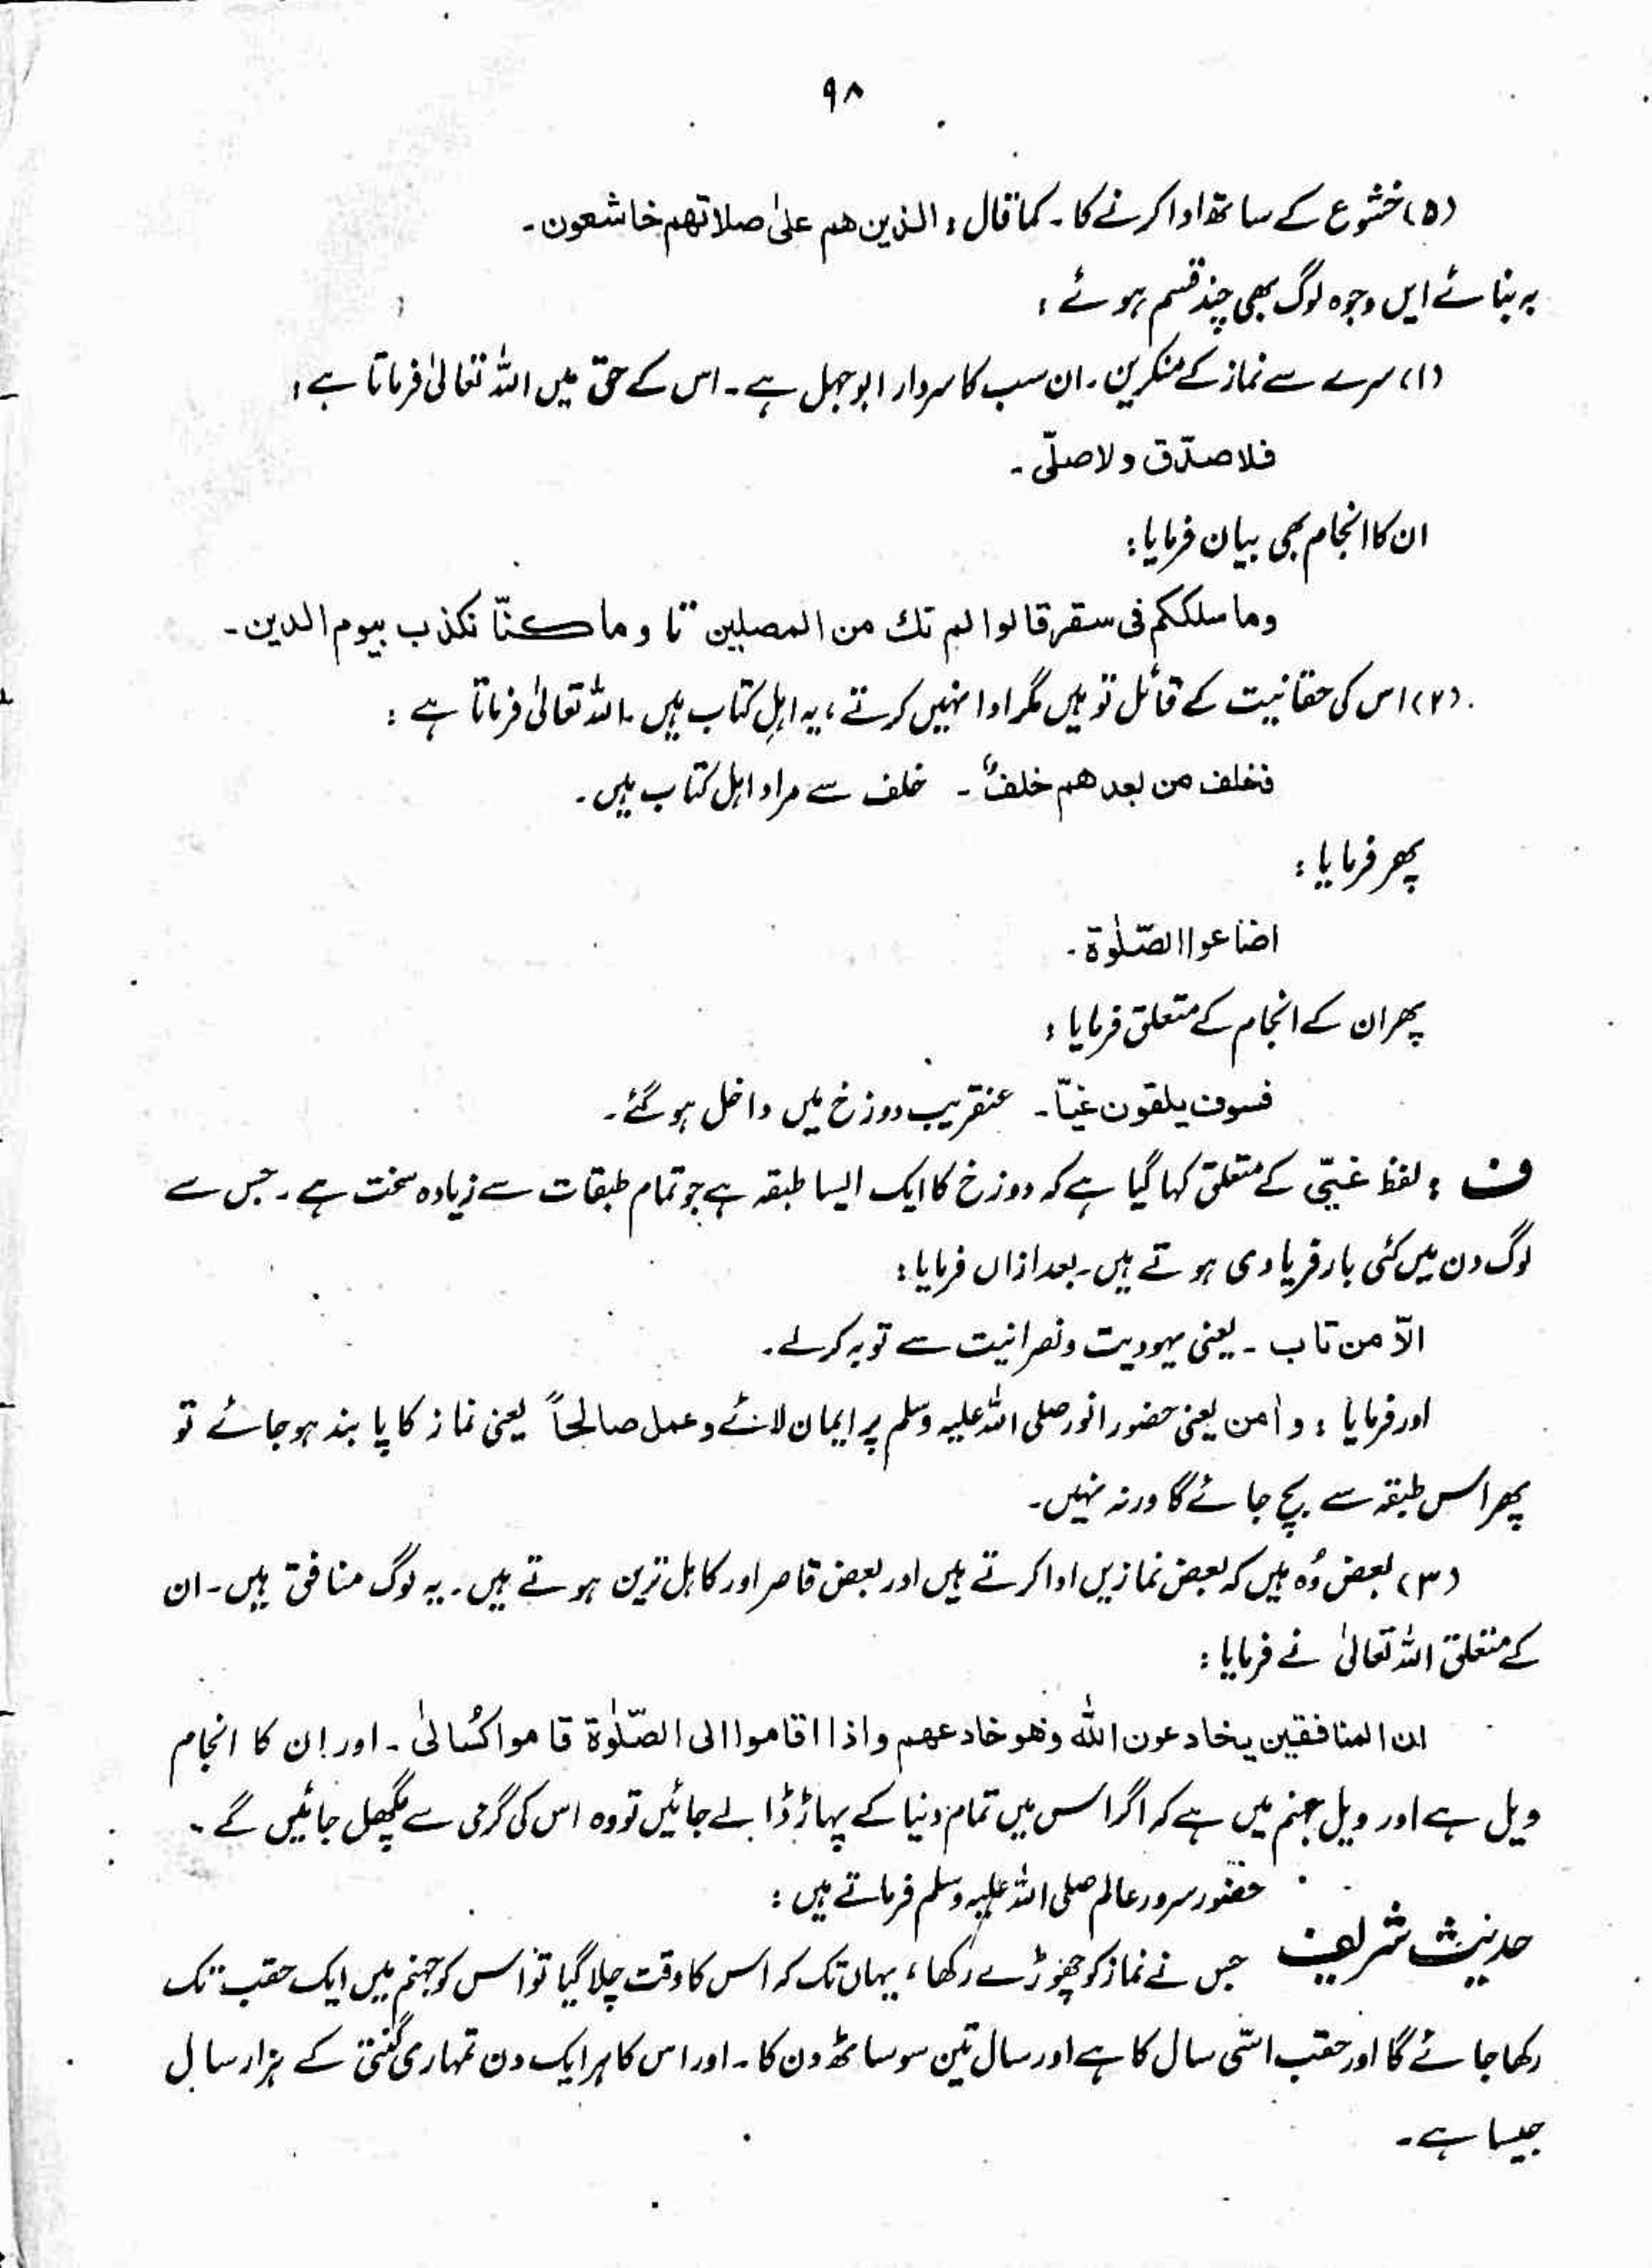 ۹۸
(۵) خشوع کے ساتھ ادا کرنے کا۔ کما قال : الذین هم علیٰ صلاتهم خاشعون۔
بہ بنائے ایں وجوہ لوگ بھی چند قسم ہوئے :
(۱) سرے سے نماز کے منکرین۔ ان سب کا سردار ابوجہل ہے۔ اس کے حق میں اللہ تعالیٰ فرماتا ہے :
فلا صدّق ولا صلّی۔
ان کا انجام بھی بیان فرمایا :
وما سلککم فی سقر قالوا لم تك من المصلین تا وما کنّا نکذب بیوم الدین۔
(۲) اس کی حقانیت کے قائل تو ہیں مگر ادا نہیں کرتے، یہ اہلِ کتاب ہیں۔ اللہ تعالیٰ فرماتا ہے :
فخلف من بعدهم خلفٌ۔ خلف سے مراد اہل کتاب ہیں۔
پھر فرمایا :
اضاعوا الصّلٰوة۔
پھر ان کے انجام کے متعلق فرمایا :
فسوف یلقون غیّاً۔ عنقریب دوزخ میں داخل ہوگئے۔
ف : لفظ غیّی کے متعلق کہا گیا ہے کہ دوزخ کا ایک ایسا طبقہ ہے جو تمام طبقات سے زیادہ سخت ہے۔ جس سے
لوگ دن میں کئی بار فریادی ہوتے ہیں۔ بعد ازاں فرمایا :
الّا من تاب ۔ یعنی یہودیت و نصرانیت سے توبہ کرلے۔
اور فرمایا : واٰمن یعنی حضور انور صلی اللہ علیہ وسلم پر ایمان لائے وعمل صالحاً یعنی نماز کا پابند ہوجائے تو
پھر اس طبقہ سے بچ جائے گا ورنہ نہیں۔
(۳) بعض وُہ ہیں کہ بعض نمازیں ادا کرتے ہیں اور بعض قاصر اور کاہل ترین ہوتے ہیں۔ یہ لوگ منافق ہیں۔ ان
کے متعلق اللہ تعالیٰ نے فرمایا :
ان المنافقین یخادعون اللّٰه وهو خادعهم واذا اقاموا الی الصّلٰوة قاموا کُسالیٰ۔ اور اِن کا انجام
ویل ہے اور ویل جہنم میں ہے کہ اگر اس میں تمام دنیا کے پہاڑ ڈالے جائیں تو وہ اس کی گرمی سے پگھل جائیں گے۔
حضور سرور عالم صلی اللہ علیہ وسلم فرماتے ہیں :
حدیث شریف جس نے نماز کو چھوڑے رکھا، یہاں تک کہ اس کا وقت چلا گیا تو اس کو جہنم میں ایک حقب تک
رکھا جائے گا اور حقب اسّی سال کا ہے اور سال تین سو ساٹھ دن کا۔ اور اس کا ہر ایک دن تمہاری گنتی کے ہزار سال
جیسا ہے۔